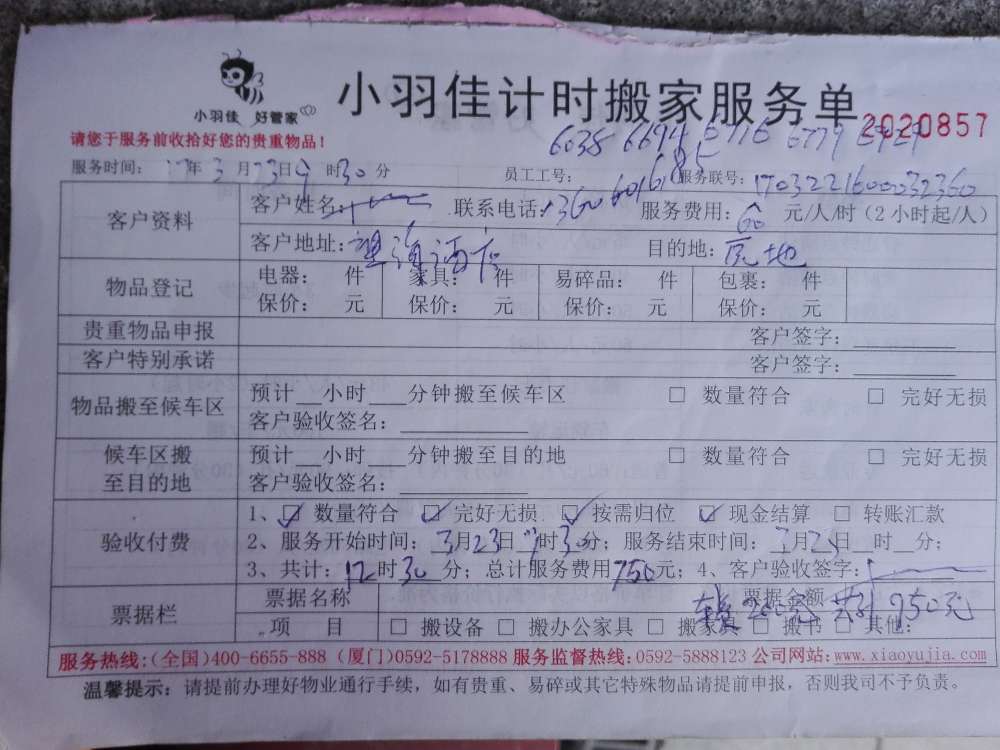 小羽佳 好管家
小羽佳计时搬家服务单
2020857
请您于服务前收拾好您的贵重物品！
6038 6694 6779
服务时间： 17年3月23日9时30分 员工工号： 服务联号：1703221600032360
客户资料
客户姓名： 联系电话：13606016185 服务费用：60元/人/时（2小时起/人）
客户地址：望海酒店 目的地：原地
物品登记
电器： 件 家具： 件 易碎品： 件 包裹： 件
保价： 元 保价： 元 保价： 元 保价： 元
贵重物品申报 客户签字：
客户特别承诺 客户签字：
物品搬至候车区
预计__小时___分钟搬至候车区 □ 数量符合 □ 完好无损
客户验收签名：
候车区搬至目的地
预计__小时___分钟搬至目的地 □ 数量符合 □ 完好无损
客户验收签名：
验收付费
1、☑ 数量符合 ☑ 完好无损 ☑ 按需归位 ☑ 现金结算 □ 转账汇款
2、服务开始时间：3月23日9时30分；服务结束时间：3月23日__时__分；
3、共计：12时30分；总计服务费用750元；4、客户验收签字：
票据栏
票据名称 票据金额 200元 共计950元
项 目 □ 搬设备 □ 搬办公家具 □ 搬家具 □ 搬书 □ 其他：
服务热线：（全国）400-6655-888 （厦门）0592-5178888 服务监督热线：0592-5888123 公司网站：www.xiaoyujia.com
温馨提示：请提前办理好物业通行手续，如有贵重、易碎或其它特殊物品请提前申报，否则我司不予负责。